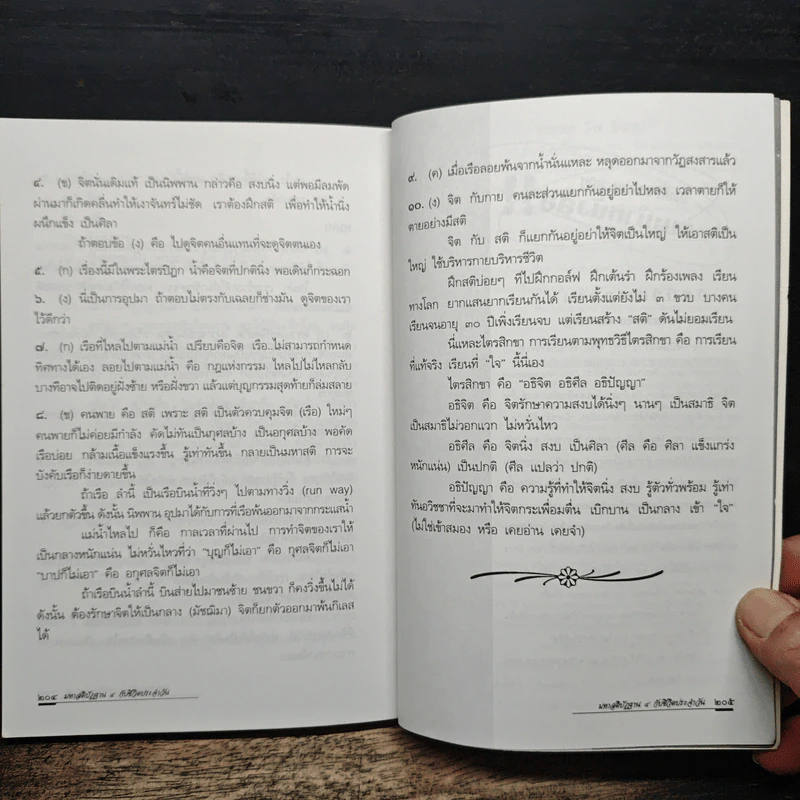 ๔. (ข) จิตนั่นเดิมแท้ เป็นนิพพาน กล่าวคือ สงบนิ่ง แต่พอมีลมพัด
ผ่านมาก็เกิดคลื่นทำให้เงาจันทร์ไม่ชัด เราต้องฝึกสติ เพื่อทำให้น้ำนิ่ง
ผนึกแข็ง เป็นศิลา
ถ้าตอบข้อ (ง) คือ ไปดูจิตคนอื่นแทนที่จะดูจิตตนเอง
๕. (ก) เรื่องนี้มีในพระไตรปิฎก น้ำคือจิตที่ปกตินิ่ง พอเดินก็กระฉอก
๖. (ง) นี่เป็นการอุปมา ถ้าตอบไม่ตรงกับเฉลยก็ช่างมัน ดูจิตของเรา
ไว้ดีกว่า
๗. (ก) เรือที่ไหลไปตามแม่น้ำ เปรียบคือจิต เรือ..ไม่สามารถกำหนด
ทิศทางได้เอง ลอยไปตามแม่น้ำ คือ กฎแห่งกรรม ไหลไปไม่ไหลกลับ
บางทีอาจไปติดอยู่ฝั่งซ้าย หรือฝั่งขวา แล้วแต่บุญกรรมสุดท้ายก็ล่มสลาย
๘. (ข) คนพาย คือ สติ เพราะ สติ เป็นตัวควบคุมจิต (เรือ) ใหม่ๆ
คนพายก็ไม่ค่อยมีกำลัง คัดไม่ทันเป็นกุศลบ้าง เป็นอกุศลบ้าง พอคัด
เรือบ่อย กล้ามเนื้อแข็งแรงขึ้น รู้เท่าทันขึ้น กลายเป็นมหาสติ การจะ
บังคับเรือก็ง่ายดายขึ้น
ถ้าเรือ ลำนี้ เป็นเรือบินน้ำที่วิ่งๆ ไปตามทางวิ่ง (run way)
แล้วยกตัวขึ้น ดังนั้น นิพพาน อุปมาได้กับการที่เรือพ้นออกมาจากกระแสน้ำ
แม่น้ำไหลไป ก็คือ กาลเวลาที่ผ่านไป การทำจิตของเราให้
เป็นกลางหนักแน่น ไม่หวั่นไหวที่ว่า “บุญก็ไม่เอา” คือ กุศลจิตก็ไม่เอา
“บาปก็ไม่เอา” คือ อกุศลจิตก็ไม่เอา
ถ้าเรือบินน้ำลำนี้ บินส่ายไปมาชนซ้าย ชนขวา ก็คงวิ่งขึ้นไม่ได้
ดังนั้น ต้องรักษาจิตให้เป็นกลาง (มัชฌิมา) จิตก็ยกตัวออกมาพ้นกิเลส
ได้
๒๐๔ มหาสติปัฏฐาน ๔ กับชีวิตประจำวัน
๙. (ค) เมื่อเรือลอยพ้นจากน้ำนั่นแหละ หลุดออกมาจากวัฏสงสารแล้ว
๑๐. (ง) จิต กับกาย คนละส่วนแยกกันอยู่อย่าไปหลง เวลาตายก็ให้
ตายอย่างมีสติ
จิต กับ สติ ก็แยกกันอยู่อย่าให้จิตเป็นใหญ่ ให้เอาสติเป็น
ใหญ่ ใช้บริหารกายบริหารชีวิต
ฝึกสติบ่อยๆ ทีไปฝึกกอล์ฟ ฝึกเต้นรำ ฝึกร้องเพลง เรียน
ทางโลก ยากแสนยากเรียนกันได้ เรียนตั้งแต่ยังไม่ ๓ ขวบ บางคน
เรียนจนอายุ ๓๐ ปีเพิ่งเรียนจบ แต่เรียนสร้าง “สติ” ดันไม่ยอมเรียน
นี่แหละไตรสิกขา การเรียนตามพุทธวิธีไตรสิกขา คือ การเรียน
ที่แท้จริง เรียนที่ “ใจ” นี้นี่เอง
ไตรสิกขา คือ “อธิจิต อธิศีล อธิปัญญา”
อธิจิต คือ จิตรักษาความสงบได้นิ่งๆ นานๆ เป็นสมาธิ จิต
เป็นสมาธิไม่วอกแวก ไม่หวั่นไหว
อธิศีล คือ จิตนิ่ง สงบ เป็นศิลา (ศีล คือ ศิลา แข็งแกร่ง
หนักแน่น) เป็นปกติ (ศีล แปลว่า ปกติ)
อธิปัญญา คือ ความรู้ที่ทำให้จิตนิ่ง สงบ รู้ตัวทั่วพร้อม รู้เท่า
ทันอวิชชาที่จะมาทำให้จิตกระเพื่อมตื่น เบิกบาน เป็นกลาง เข้า “ใจ”
(ไม่ใช่เข้าสมอง หรือ เคยอ่าน เคยจำ)
มหาสติปัฏฐาน ๔ กับชีวิตประจำวัน ๒๐๕